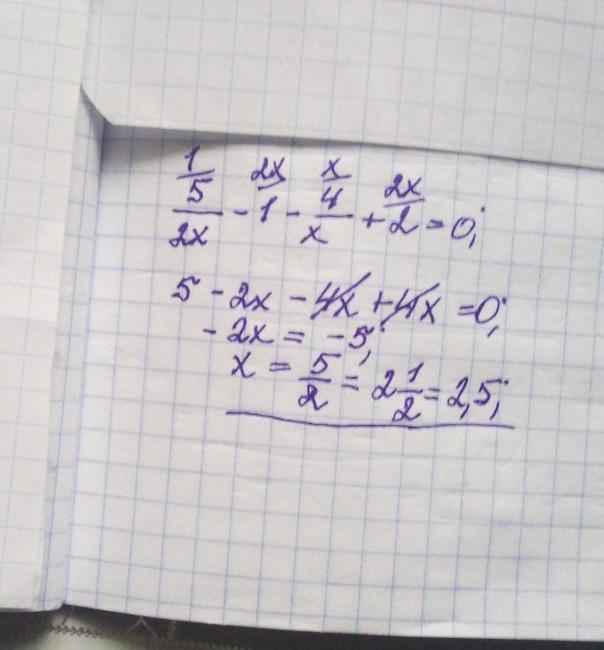 1 2x x 2x
5/2x - 1 - 4/x + 2 = 0;
5 - 2x - 4x + 4x = 0;
- 2x = - 5;
x = 5/2 = 2 1/2 = 2,5;